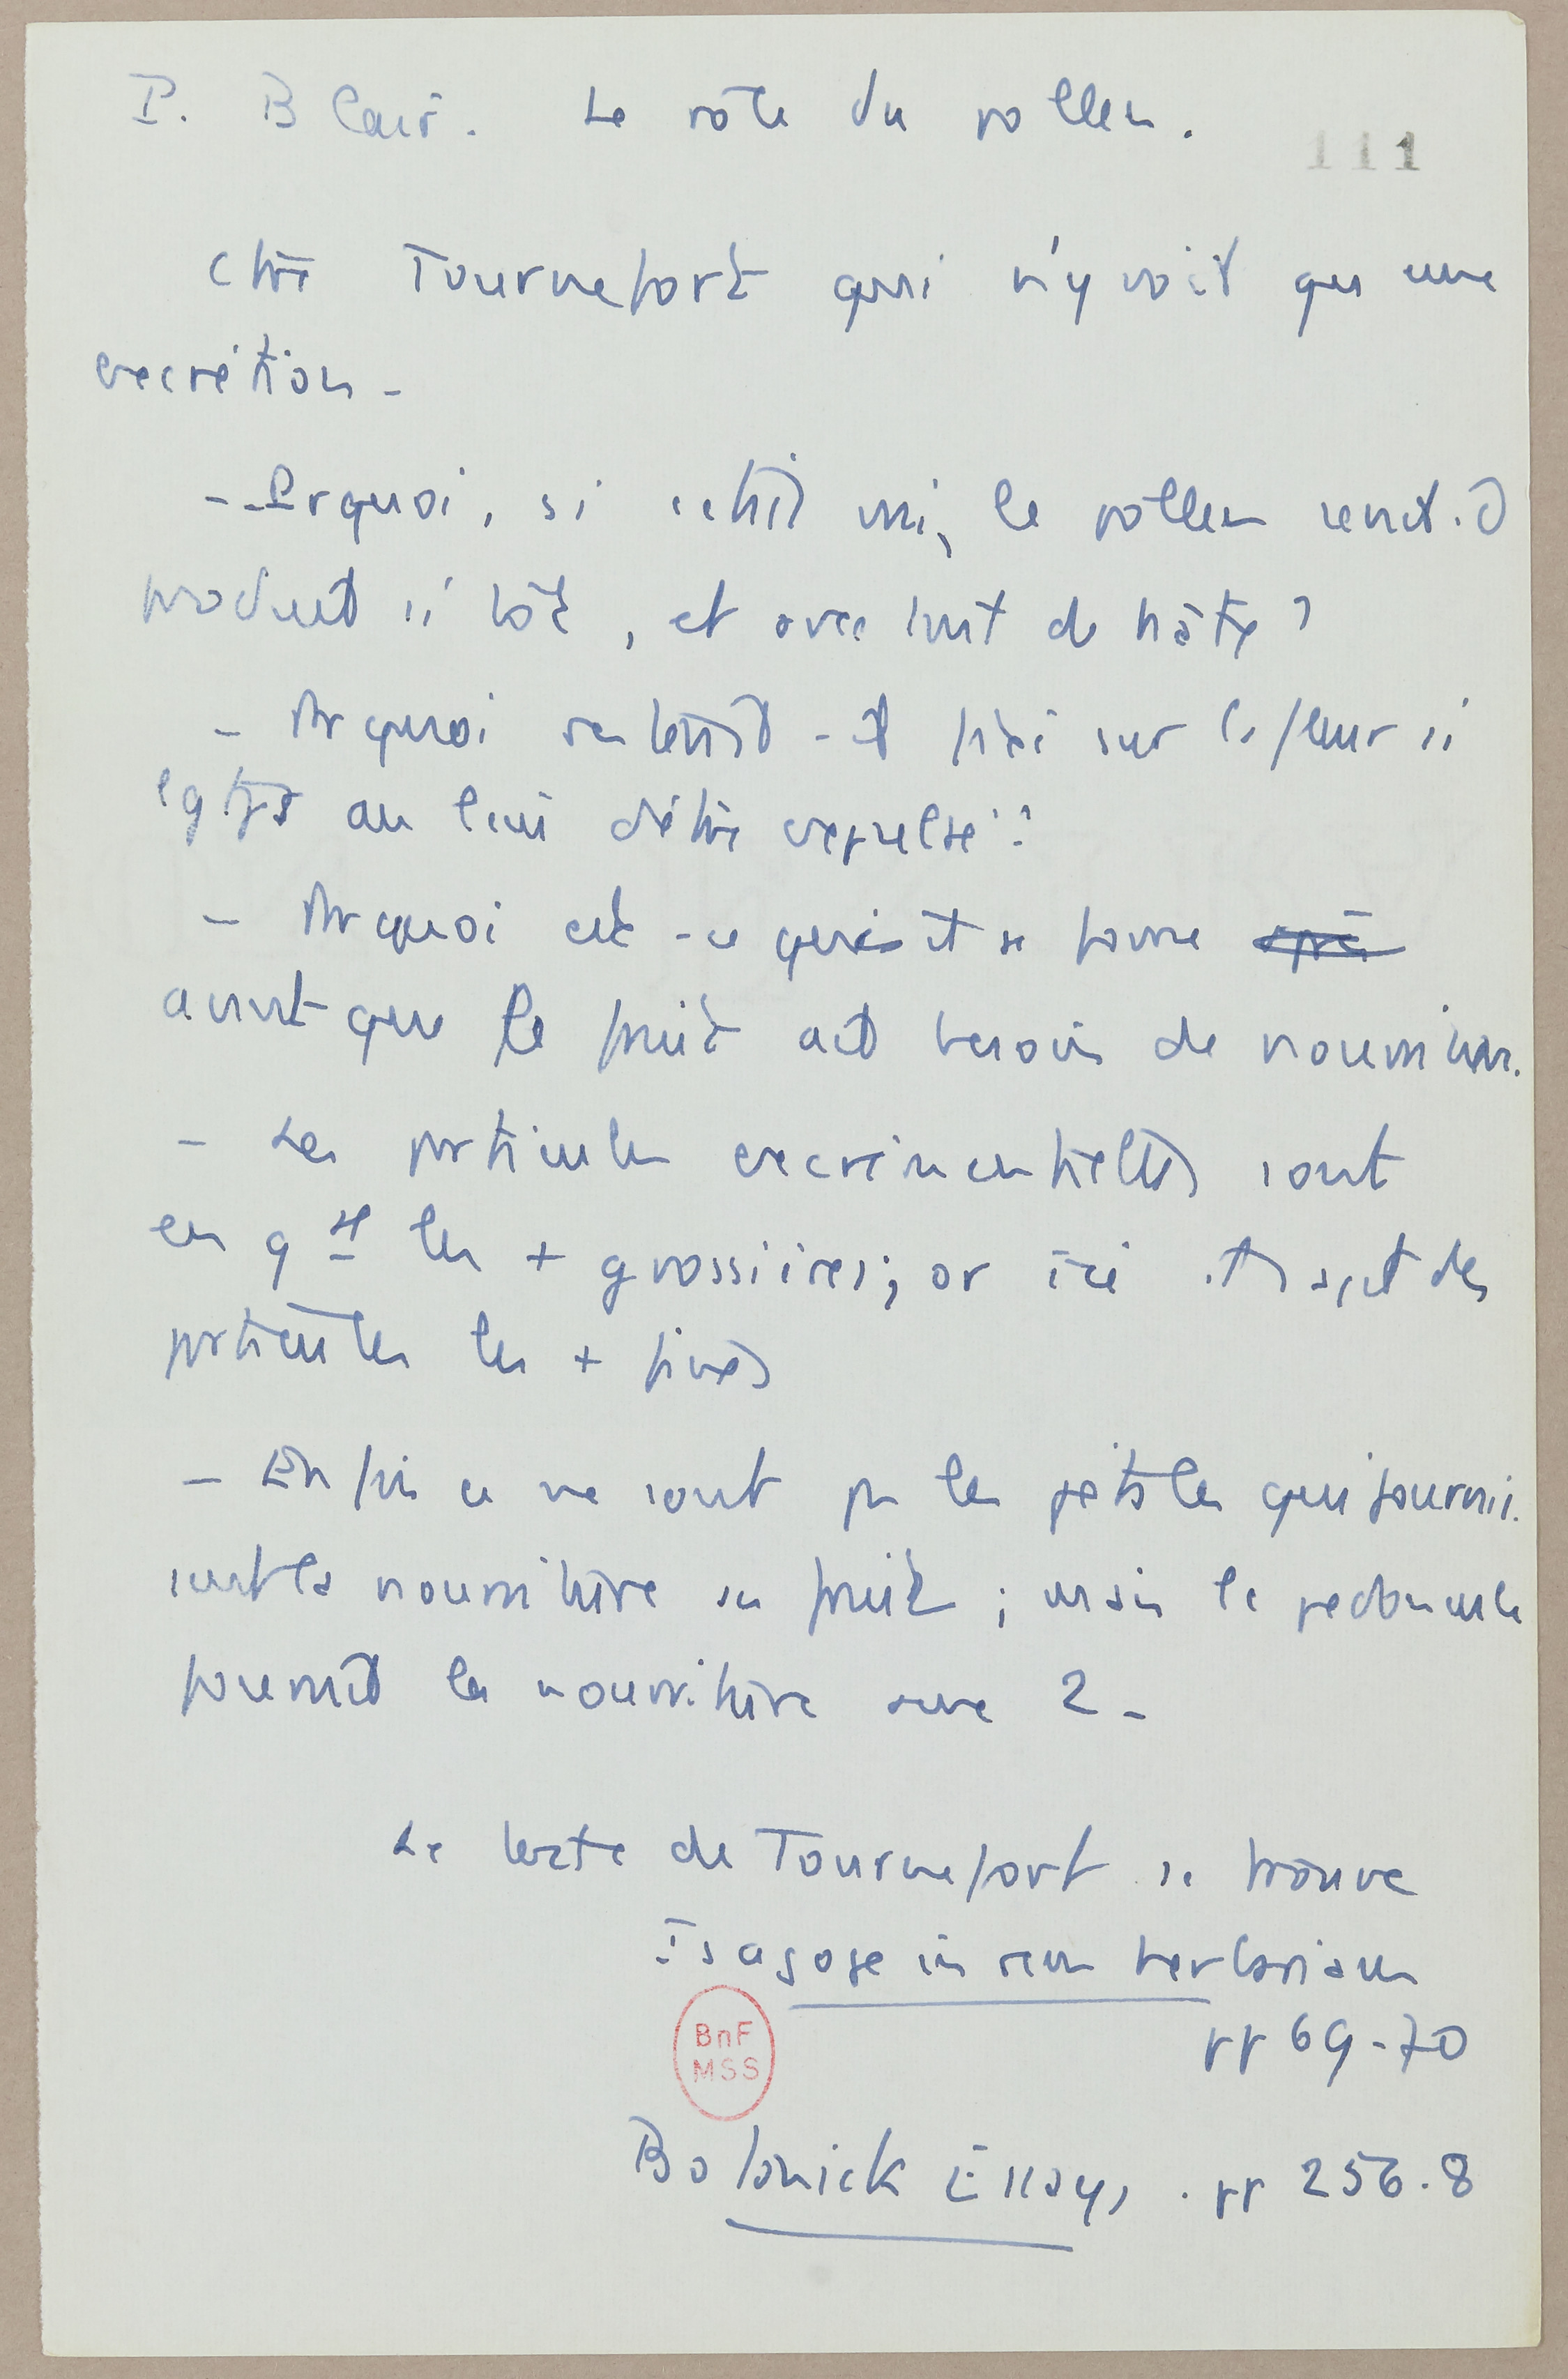 P. Blair. Le rôle du pollen.
111
Ctre Tournefort qui n'y voit qu'une
excrétion -
- Prquoi, si c'était vrai, le pollen serait-il
produit si tôt, et avec tant de hâte ?
- Prquoi resterait-il fixé sur la fleur si
lgtps au lieu d'être expulsé ?
- Prquoi est-ce qu'il se forme après
avant que le fruit ait besoin de nourriture.
- Les particules excrémentielles sont
en gal les + grossières ; or ici il s'agit des
particules les + fines
- Enfin ce ne sont pas les pétales qui fournis-
sent la nourriture au fruit ; mais le pédoncule
fournit la nourriture aux 2 -
Le texte de Tournefort se trouve
Isagoge in rem herbariam
pp 69-70
BnF
MSS
Botanick Essays . pp 256-8